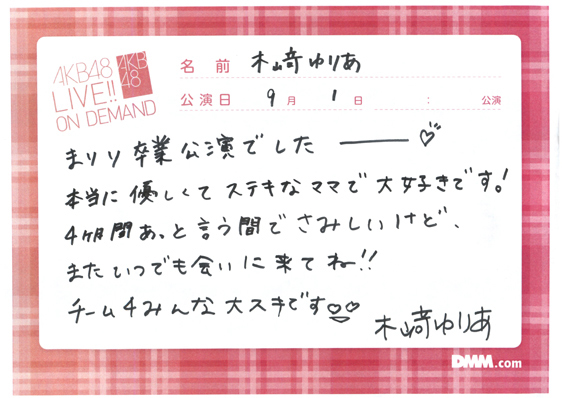 AKB48
LIVE!!
ON DEMAND
AKB
48
名前 木﨑ゆりあ
公演日 9月 1日 : 公演
まりり卒業公演でした
本当に優しくてステキなママで大好きです!
4ヶ月間あっと言う間でさみしいけど、
またいつでも会いに来てね!!
チーム4みんな大スキです
木﨑ゆりあ
DMM.com